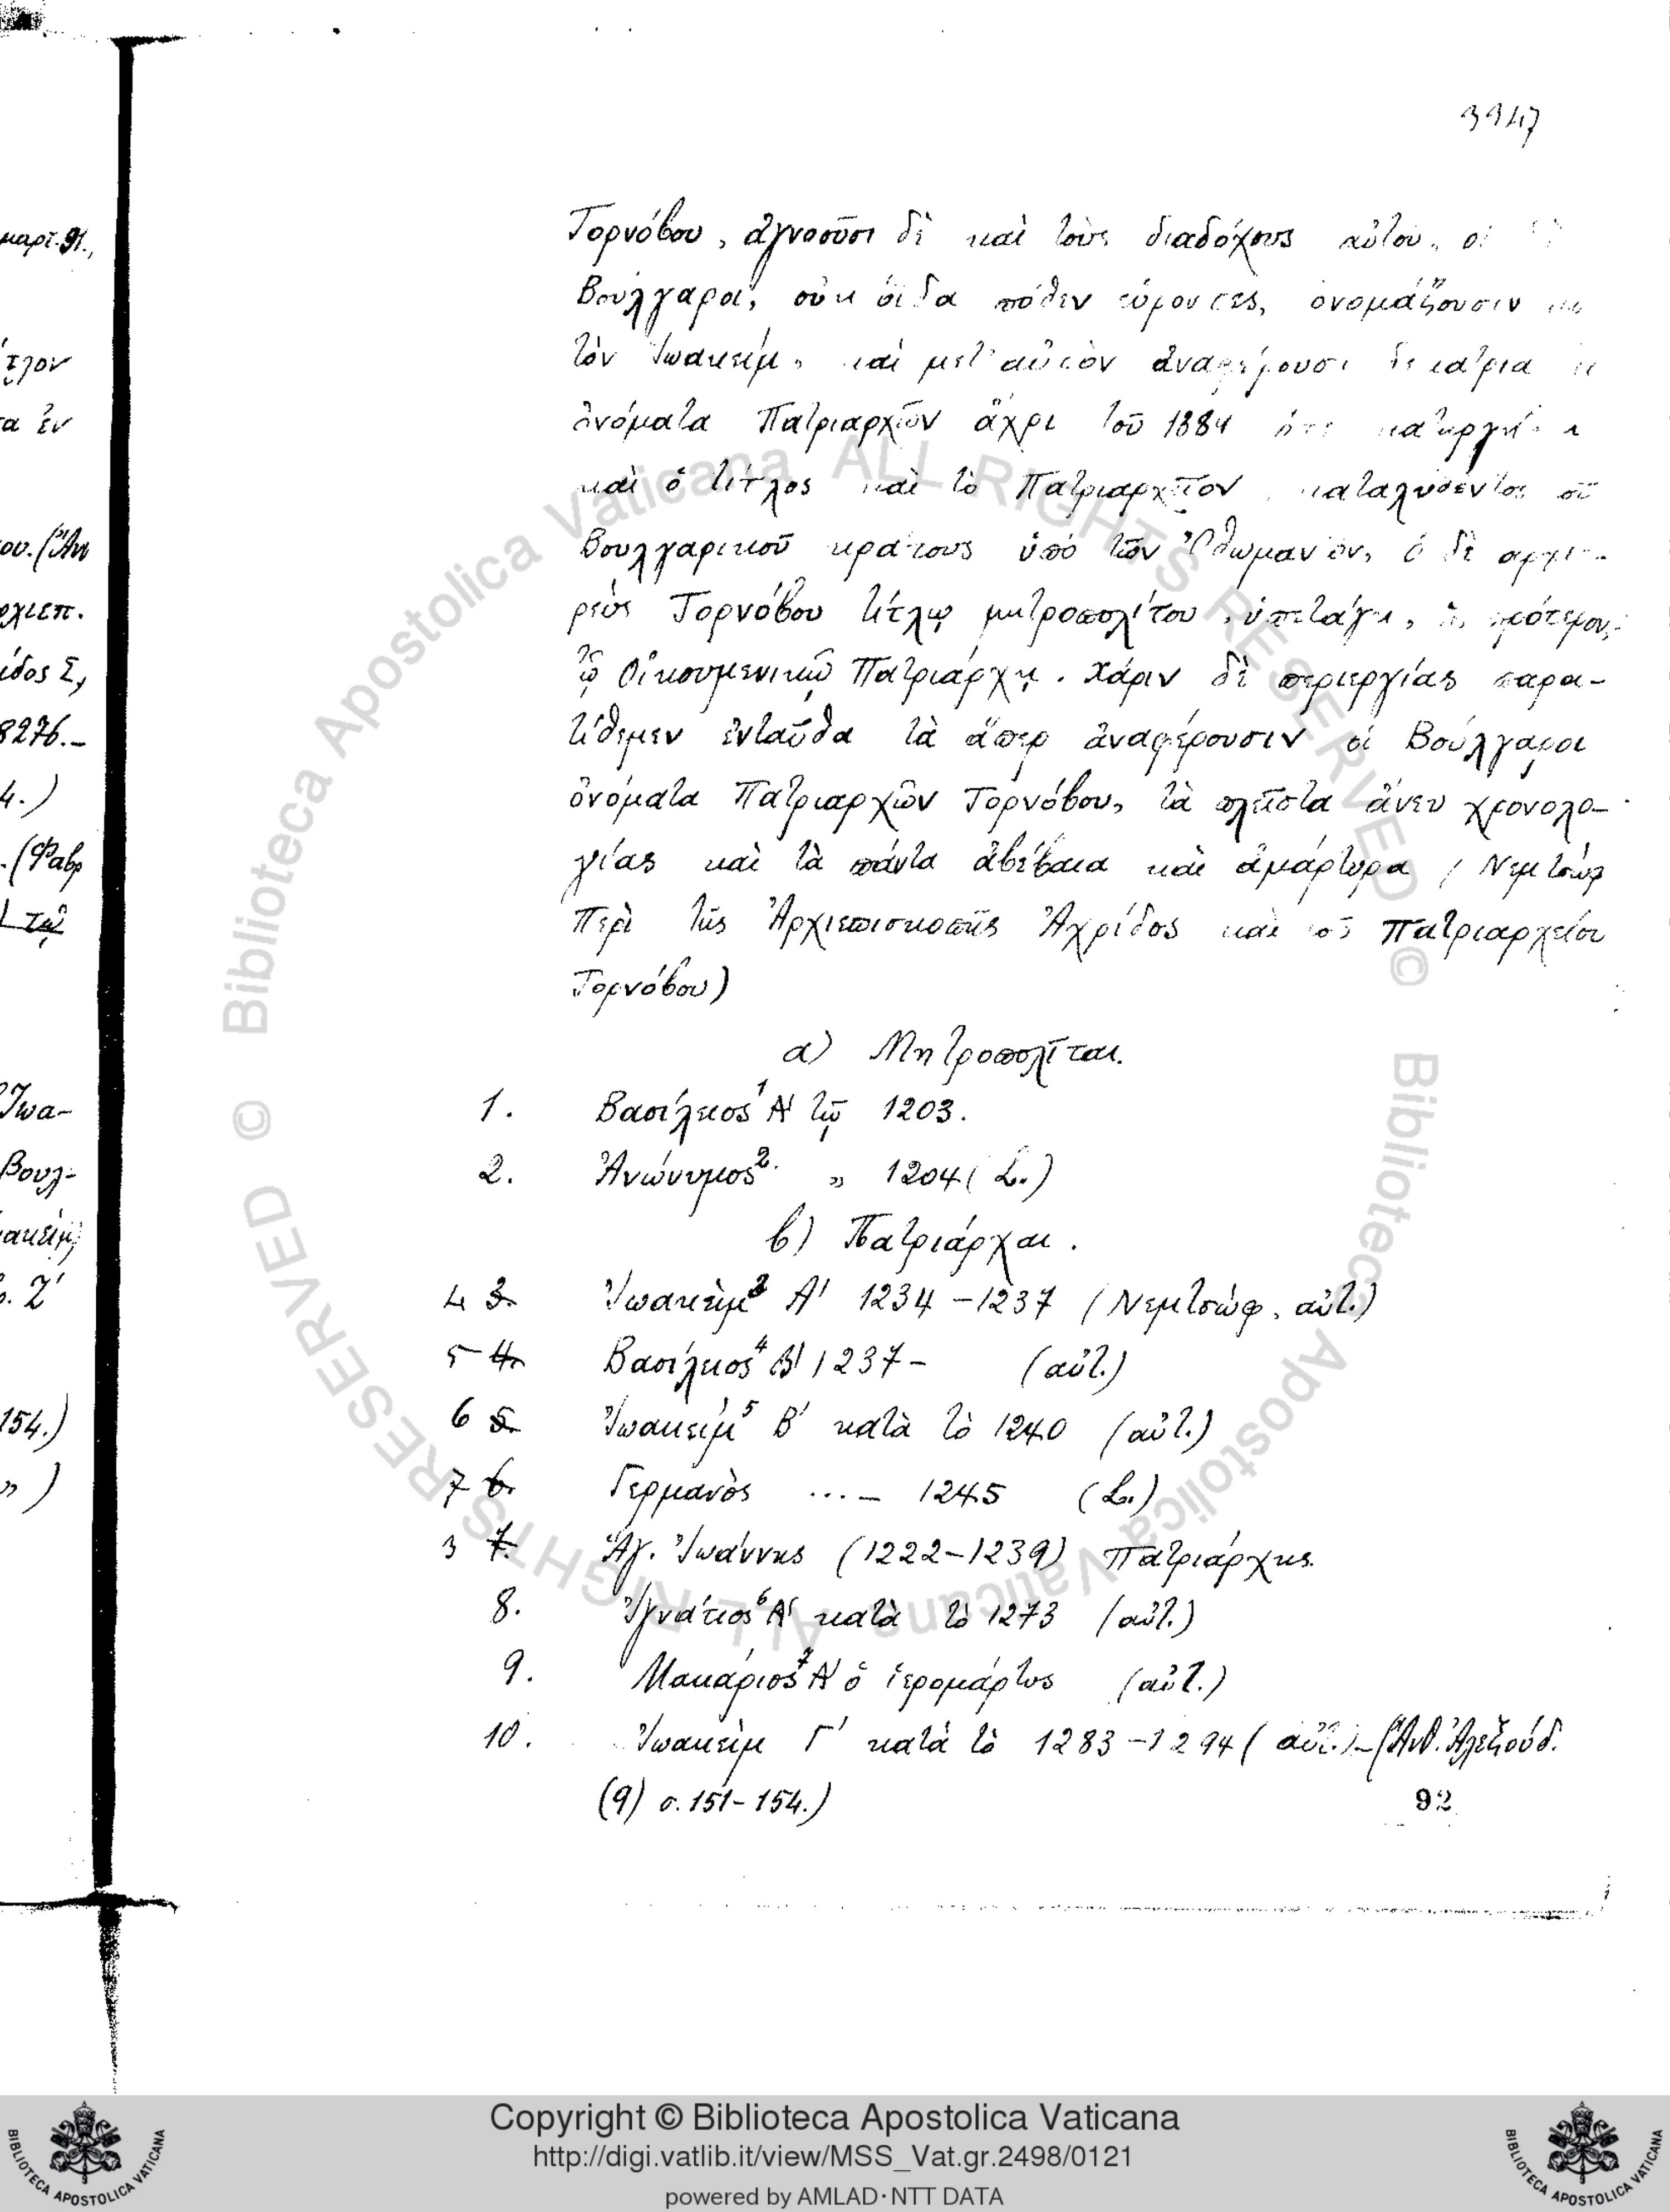 3947
Τορνόβου, ἀγνοοῦσι δὲ καὶ τοὺς διαδόχους αὐτοῦ, οἱ
Βούλγαροι, οὐκ οἶδα πόθεν εὑρόντες, ὀνομάζουσιν
τὸν Ἰωακεὶμ, καὶ μετ' αὐτὸν ἀναφέρουσι δεκατρία
ὀνόματα Πατριαρχῶν ἄχρι τοῦ 1884 ὅτε
καὶ ὁ τίτλος καὶ τὸ Πατριαρχεῖον, καταλυθέντος τοῦ
Βουλγαρικοῦ κράτους ὑπὸ τῶν Ὀθωμανῶν, ὁ δὲ ἀρχιε-
ρεὺς Τορνόβου τίτλῳ μητροπολίτου, ὑπετάγη, ὡς πρότερον,
τῷ Οἰκουμενικῷ Πατριάρχῃ. Χάριν δὲ περιεργίας παρα-
τίθεμεν ἐνταῦθα τὰ ἅπερ ἀναφέρουσιν οἱ Βούλγαροι
ὀνόματα Πατριαρχῶν Τορνόβου, τὰ πλεῖστα ἄνευ χρονολο-
γίας καὶ τὰ πάντα ἀβέβαια καὶ ἀμάρτυρα (Νεμτσὼφ
Περὶ τῆς Ἀρχιεπισκοπῆς Ἀχρίδος καὶ τοῦ Πατριαρχείου
Τορνόβου)
α) Μητροπολῖται.
1. Βασίλειος¹ Α' τῷ 1203.
2. Ἀνώνυμος². " 1204 (L.)
β) Πατριάρχαι.
4 3. Ἰωακεὶμ³ Α' 1234-1237 (Νεμτσώφ, αὐτ.)
5 4. Βασίλειος⁴ Β' 1237- (αὐτ.)
6 5. Ἰωακεὶμ⁵ Β' κατὰ τὸ 1240 (αὐτ.)
7 6. Γερμανὸς ...- 1245 (L.)
3 7. Ἁγ. Ἰωάννης (1222-1239) Πατριάρχης.
8. Ἰγνάτιος⁶ Α' κατὰ τὸ 1273 (αὐτ.)
9. Μακάριος⁷ Α' ὁ ἱερομάρτυς (αὐτ.)
10. Ἰωακεὶμ Γ' κατὰ τὸ 1283-1294 (αὐτ.)-(Ἄνθ. Ἀλεξούδ.
(9) σ. 151-154.)
92
μαρτ. 91.,
α ἐν
ου. (Ἄν
ρχιεπ.
ίδος Σ,
8276.-
4.)
. (Φαβρ
τῷ
Ἰωα-
Βουλ-
ακεὶμ,
. Ζ'
154.)
" )
© Biblioteca Apostolica Vaticana ALL RIGHTS RESERVED © Biblioteca Apostolica Vaticana ALL RIGHTS RESERVED
Copyright © Biblioteca Apostolica Vaticana
http://digi.vatlib.it/view/MSS_Vat.gr.2498/0121
powered by AMLAD·NTT DATA
BIBLIOTECA APOSTOLICA VATICANA
BIBLIOTECA APOSTOLICA VATICANA